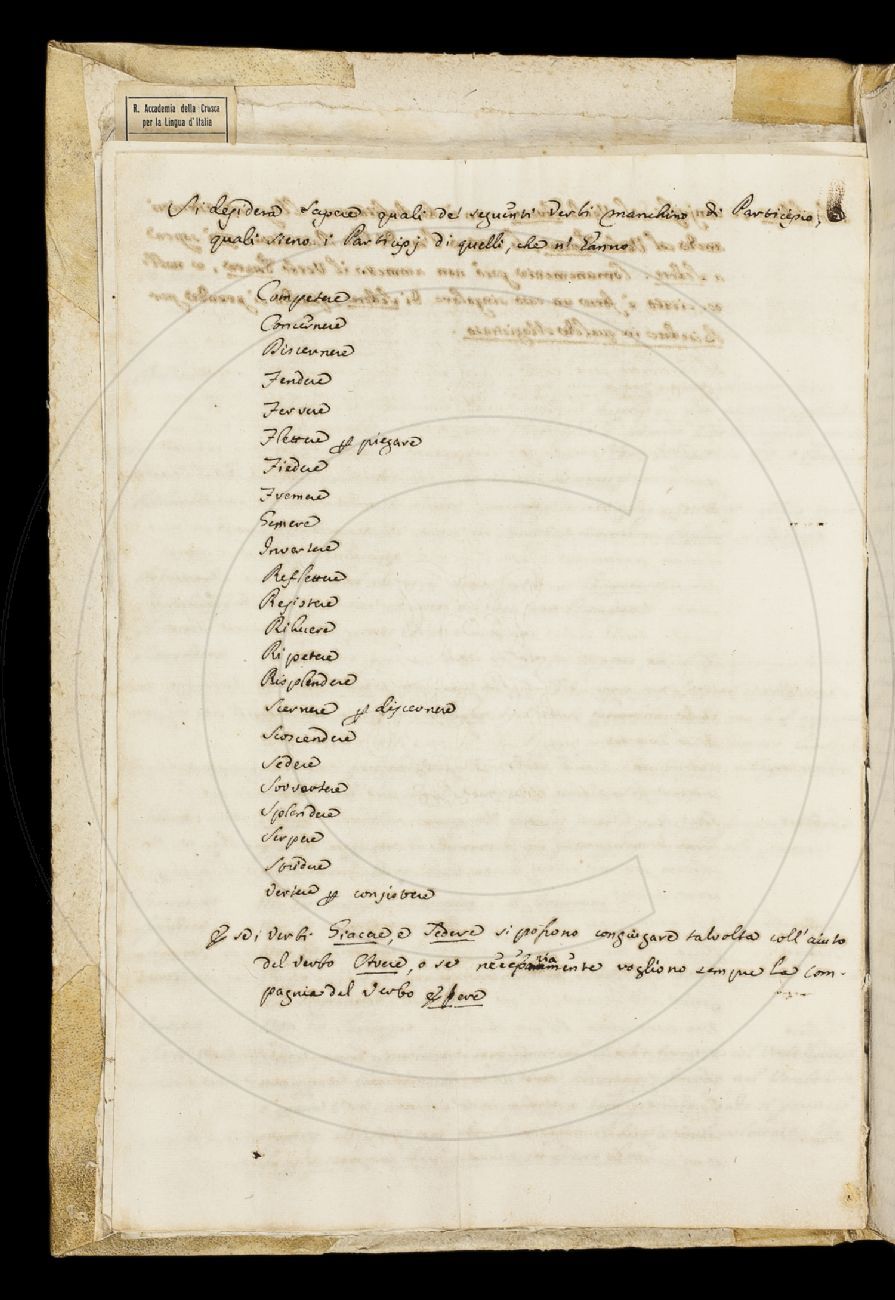 R. Accademia della Crusca
per la Lingua d'Italia
Si desidera sapere quali de' seguenti verbi manchino di Participio, e
quali sieno i Participj di quelli, che n' hanno
Competere
Concernere
Discernere
Fendere
Fervere
Flettere p piegare
Fiedere
Fremere
Gemere
Invertere
Reflettere
Resistere
Rilucere
Ripetere
Risplendere
Scernere p discernere
Scoscendere
Sedere
Sovvertere
Splendere
Serpere
Stridere
Vertere p consistere
E se i verbi Giacere, e Sedere si possono congiugare talvolta coll' aiuto
del verbo Avere, o se necessariamente vogliono sempre la com-
pagnia del verbo Essere